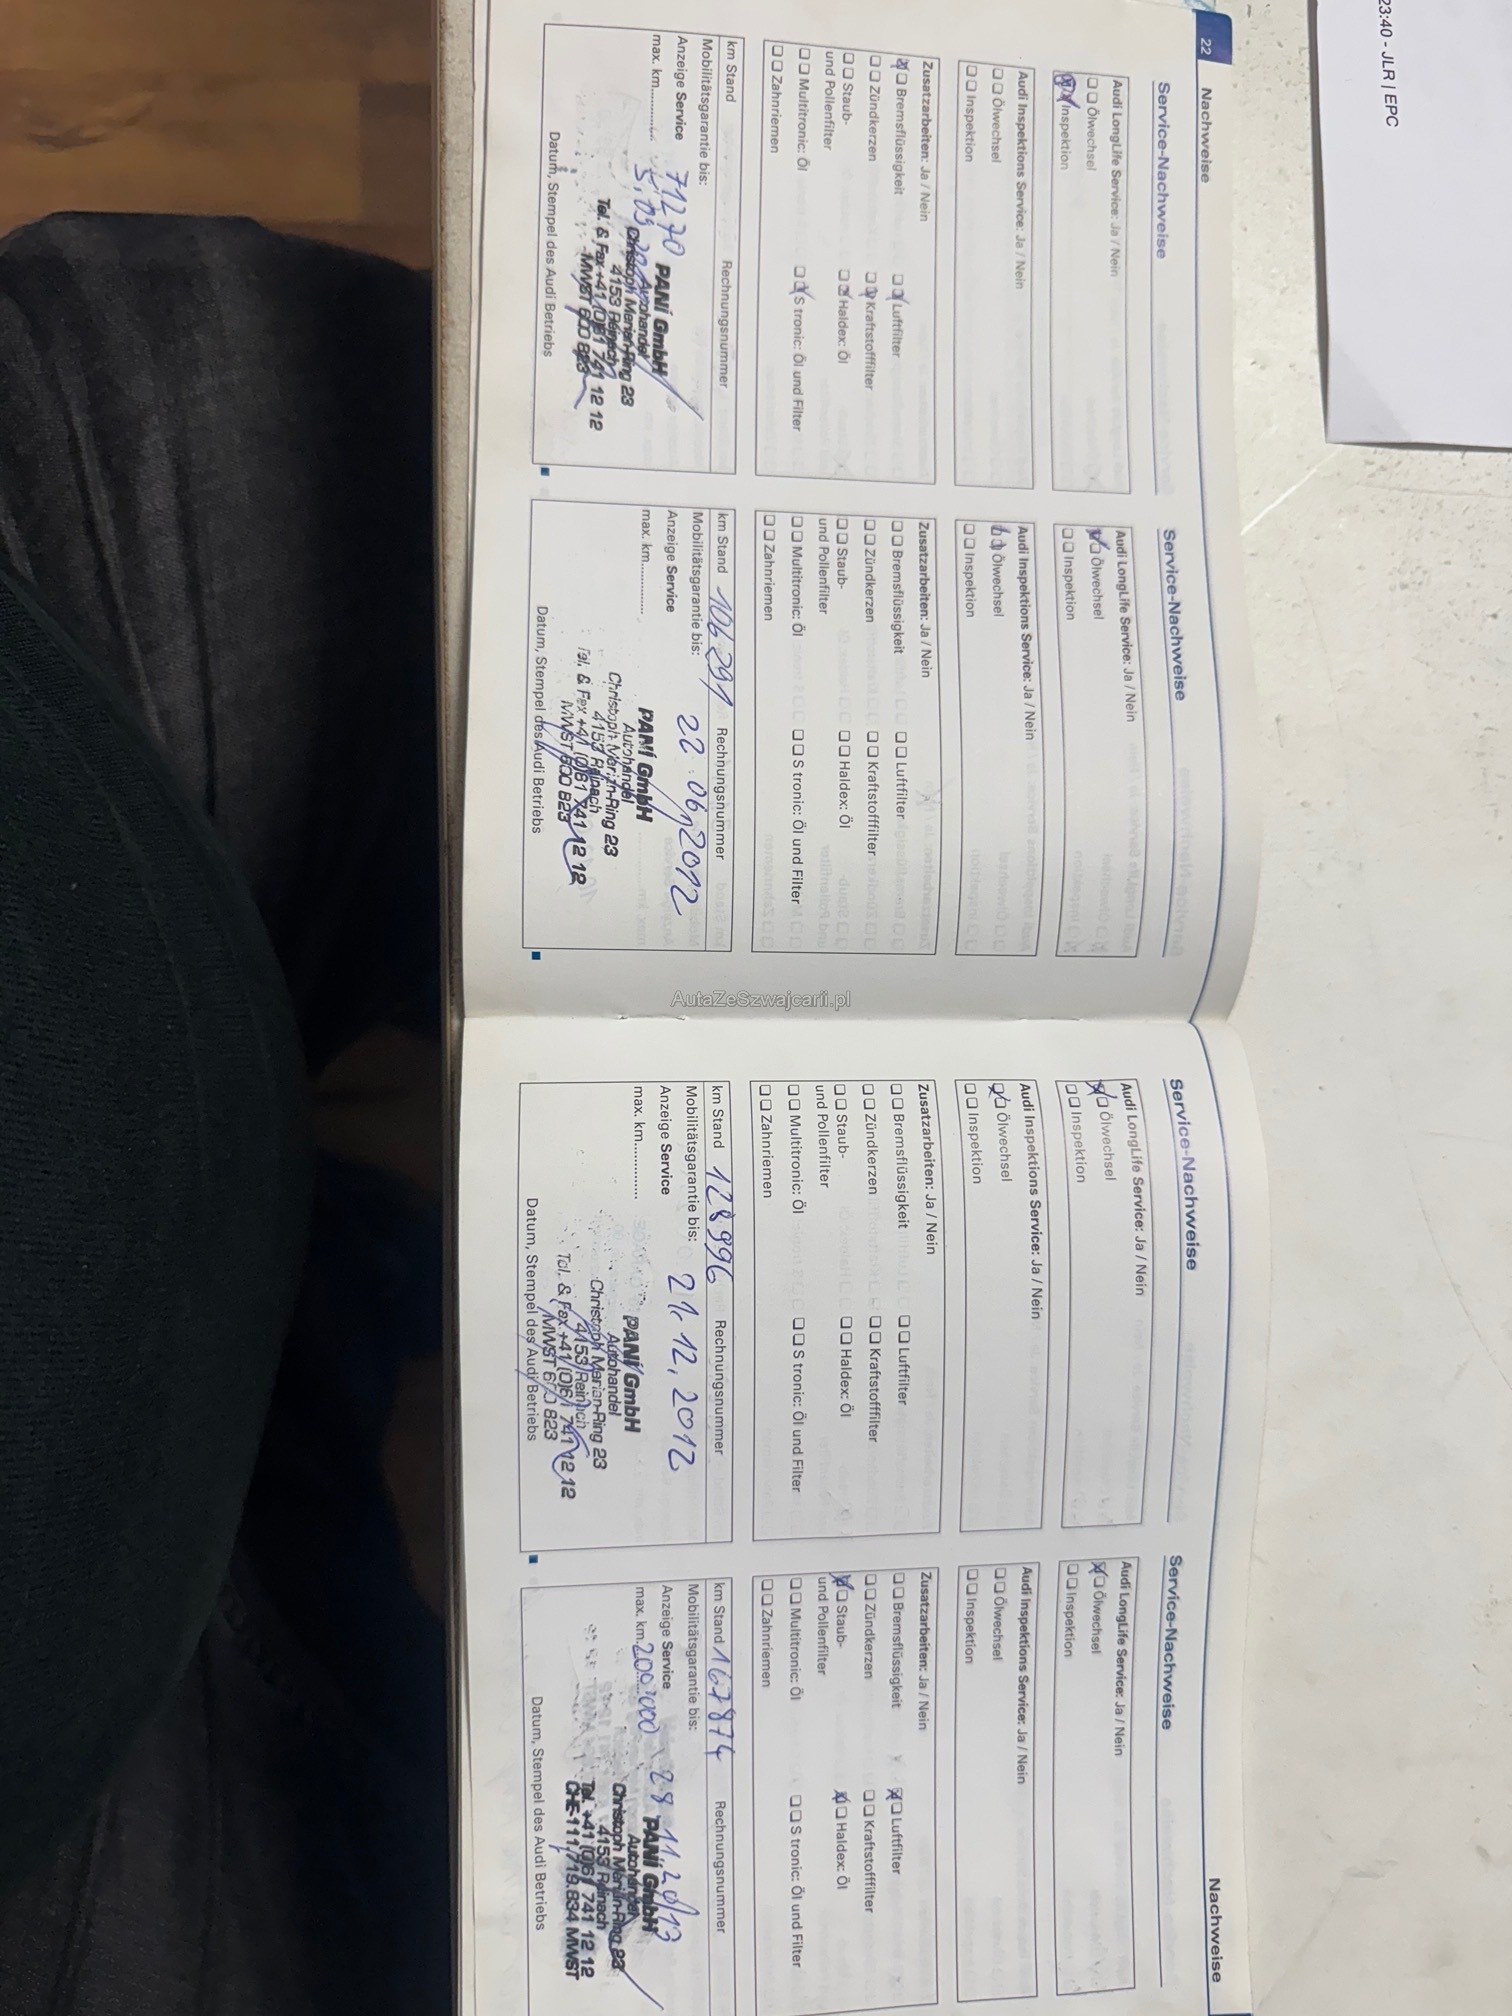 23:40 - JLR | EPC
22
Nachweise
Service-Nachweise
Audi LongLife Service: Ja / Nein
Ölwechsel
Inspektion
Audi Inspektions Service: Ja / Nein
Ölwechsel
Inspektion
Zusatzarbeiten: Ja / Nein
Bremsflüssigkeit Luftfilter
Zündkerzen Kraftstofffilter
Staub- Haldex: Öl
und Pollenfilter
Multitronic: Öl S tronic: Öl und Filter
Zahnriemen
km Stand Rechnungsnummer
Mobilitätsgarantie bis:
Anzeige Service 71270
max. km
PANÍ GmbH
Autohandel
Christoph Merian-Ring 23
4153 Reinach
Tel. & Fax +41 (0)61 741 12 12
MWST 600 823
Datum, Stempel des Audi Betriebs
Service-Nachweise
Audi LongLife Service: Ja / Nein
Ölwechsel
Inspektion
Audi Inspektions Service: Ja / Nein
Ölwechsel
Inspektion
Zusatzarbeiten: Ja / Nein
Bremsflüssigkeit Luftfilter
Zündkerzen Kraftstofffilter
Staub- Haldex: Öl
und Pollenfilter
Multitronic: Öl S tronic: Öl und Filter
Zahnriemen
km Stand 106291 Rechnungsnummer
Mobilitätsgarantie bis: 22.06.2012
Anzeige Service
max. km
PANÍ GmbH
Autohandel
Christoph Merian-Ring 23
4153 Reinach
Tel. & Fax +41 (0)61 741 12 12
MWST 600 823
Datum, Stempel des Audi Betriebs
AutaZeSzwajcarii.pl
Service-Nachweise
Audi LongLife Service: Ja / Nein
Ölwechsel
Inspektion
Audi Inspektions Service: Ja / Nein
Ölwechsel
Inspektion
Zusatzarbeiten: Ja / Nein
Bremsflüssigkeit Luftfilter
Zündkerzen Kraftstofffilter
Staub- Haldex: Öl
und Pollenfilter
Multitronic: Öl S tronic: Öl und Filter
Zahnriemen
km Stand 128996 Rechnungsnummer
Mobilitätsgarantie bis: 21.12.2012
Anzeige Service
max. km
PANÍ GmbH
Autohandel
Christoph Merian-Ring 23
4153 Reinach
Tel. & Fax +41 (0)61 741 12 12
MWST 600 823
Datum, Stempel des Audi Betriebs
Nachweise
Service-Nachweise
Audi LongLife Service: Ja / Nein
Ölwechsel
Inspektion
Audi Inspektions Service: Ja / Nein
Ölwechsel
Inspektion
Zusatzarbeiten: Ja / Nein
Bremsflüssigkeit Luftfilter
Zündkerzen Kraftstofffilter
Staub- Haldex: Öl
und Pollenfilter
Multitronic: Öl S tronic: Öl und Filter
Zahnriemen
km Stand 167874 Rechnungsnummer
Mobilitätsgarantie bis:
Anzeige Service 28.11.2013
max. km 200'000
PANÍ GmbH
Autohandel
Christoph Merian-Ring 23
4153 Reinach
Tel. +41 (0)61 741 12 12
CHE-111.719.834 MWST
Datum, Stempel des Audi Betriebs